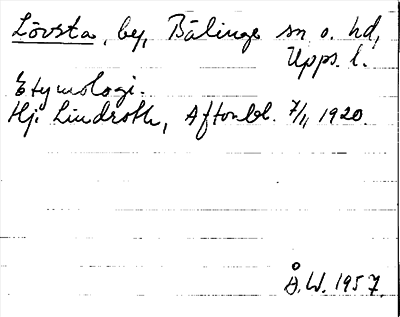 Lövsta, by, Bälinge sn o. hd,
Upps. l.
Etymologi.
Hj. Lindroth, Aftonbl. 7/11 1920.
Å.W. 1957.